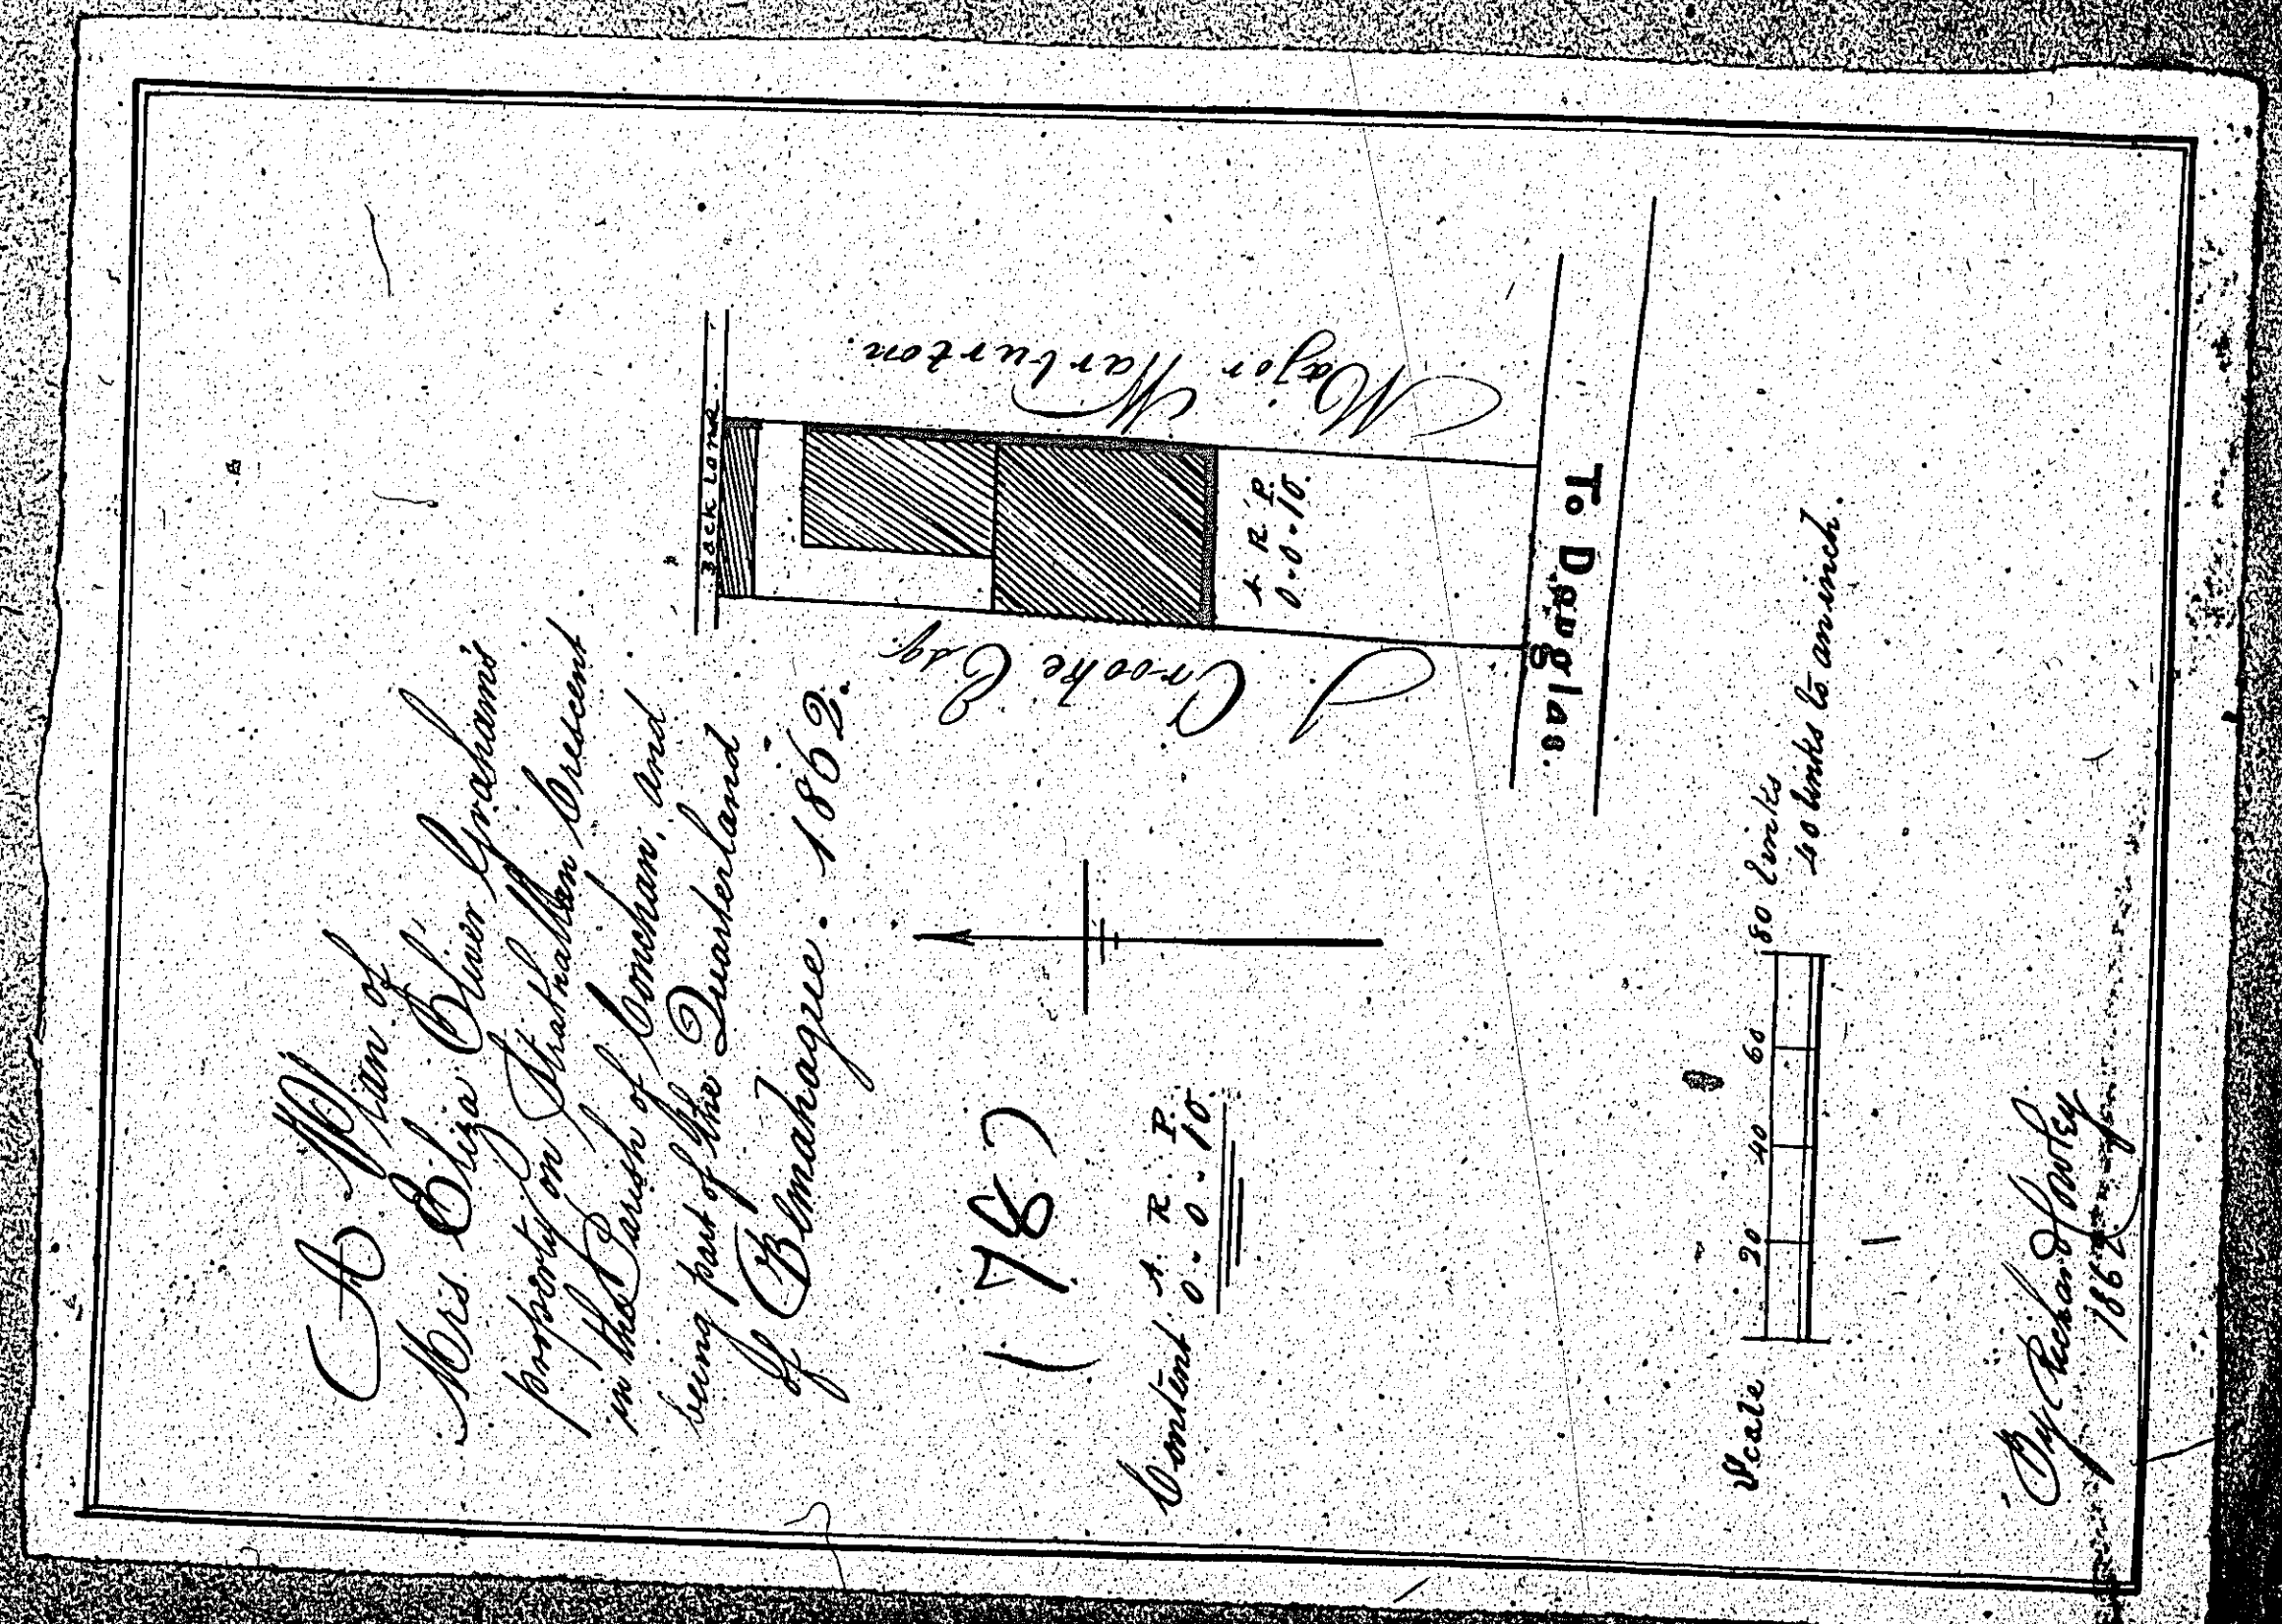 A Plan of
Mrs. Eliza Oliver Graham's
property on Strathallan Crescent
in the Parish of Conchan, and
being part of the Quarterland
of Blmahague. 1862.
( 78 )
Content A. R. P.
0. 0. 10
Back Lone
Major Warburton.
A R P.
0. 0. 10.
J Crooke Esq.
To Douglas.
Scale 20 40 60 80 links
40 links to an inch.
By Richard Cowley
1862